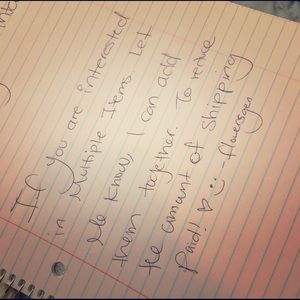 If you are interested
in Multiple Items. Let
Me Know, I can add
them together. To reduce
the amount of Shipping
Paid! ♡ :) -flowersgen